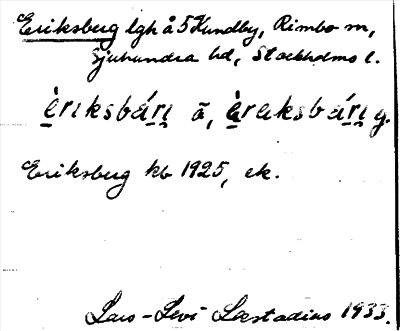 Eriksberg lgh å 5 Kundby, Rimbo sn,
Sjuhundra hd, Stockholms l.
èriksbári ā, èraksbári y.
Eriksberg kb 1925, ek.
Lars-Levi Læstadius 1933.